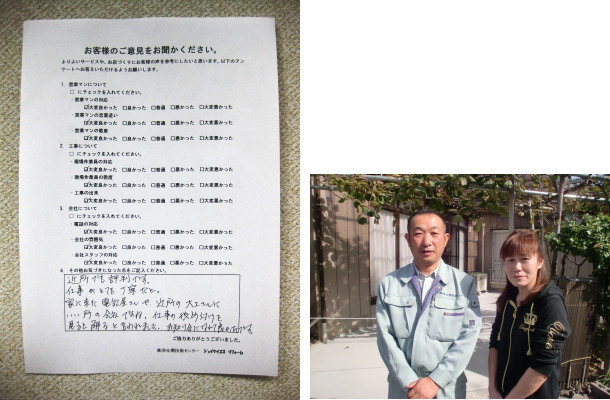 お客様のご意見をお聞かせください。
よりよいサービスや、お店づくりにお客様の声を参考にしたいと思います。以下のアン
ケートへお答えいただけるようお願いします。
1. 営業マンについて
□ にチェックを入れてください。
・営業マンの対応
☑大変良かった □良かった □普通 □悪かった □大変悪かった
・営業マンの言葉遣い
☑大変良かった □良かった □普通 □悪かった □大変悪かった
・営業マンの態度
☑大変良かった □良かった □普通 □悪かった □大変悪かった
2. 工事について
□ にチェックを入れてください。
・現場作業員の対応
☑大変良かった □良かった □普通 □悪かった □大変悪かった
・現場作業員の態度
☑大変良かった □良かった □普通 □悪かった □大変悪かった
・工事の出来
☑大変良かった □良かった □普通 □悪かった □大変悪かった
3. 会社について
□ にチェックを入れてください。
・電話の対応
☑大変良かった □良かった □普通 □悪かった □大変悪かった
・会社の雰囲気
☑大変良かった □良かった □普通 □悪かった □大変悪かった
・会社スタッフの対応
☑大変良かった □良かった □普通 □悪かった □大変悪かった
4. その他お気づきになった点をご記入ください。
近所でも評判です。
仕事がとても丁寧だと。
家に来た電気屋さんや、近所の大工さんに
いい所の会社ですね、仕事の後片付けを
見ると解ると言われました。
ご協力ありがとうございました。
ジェイケイエス リフォーム